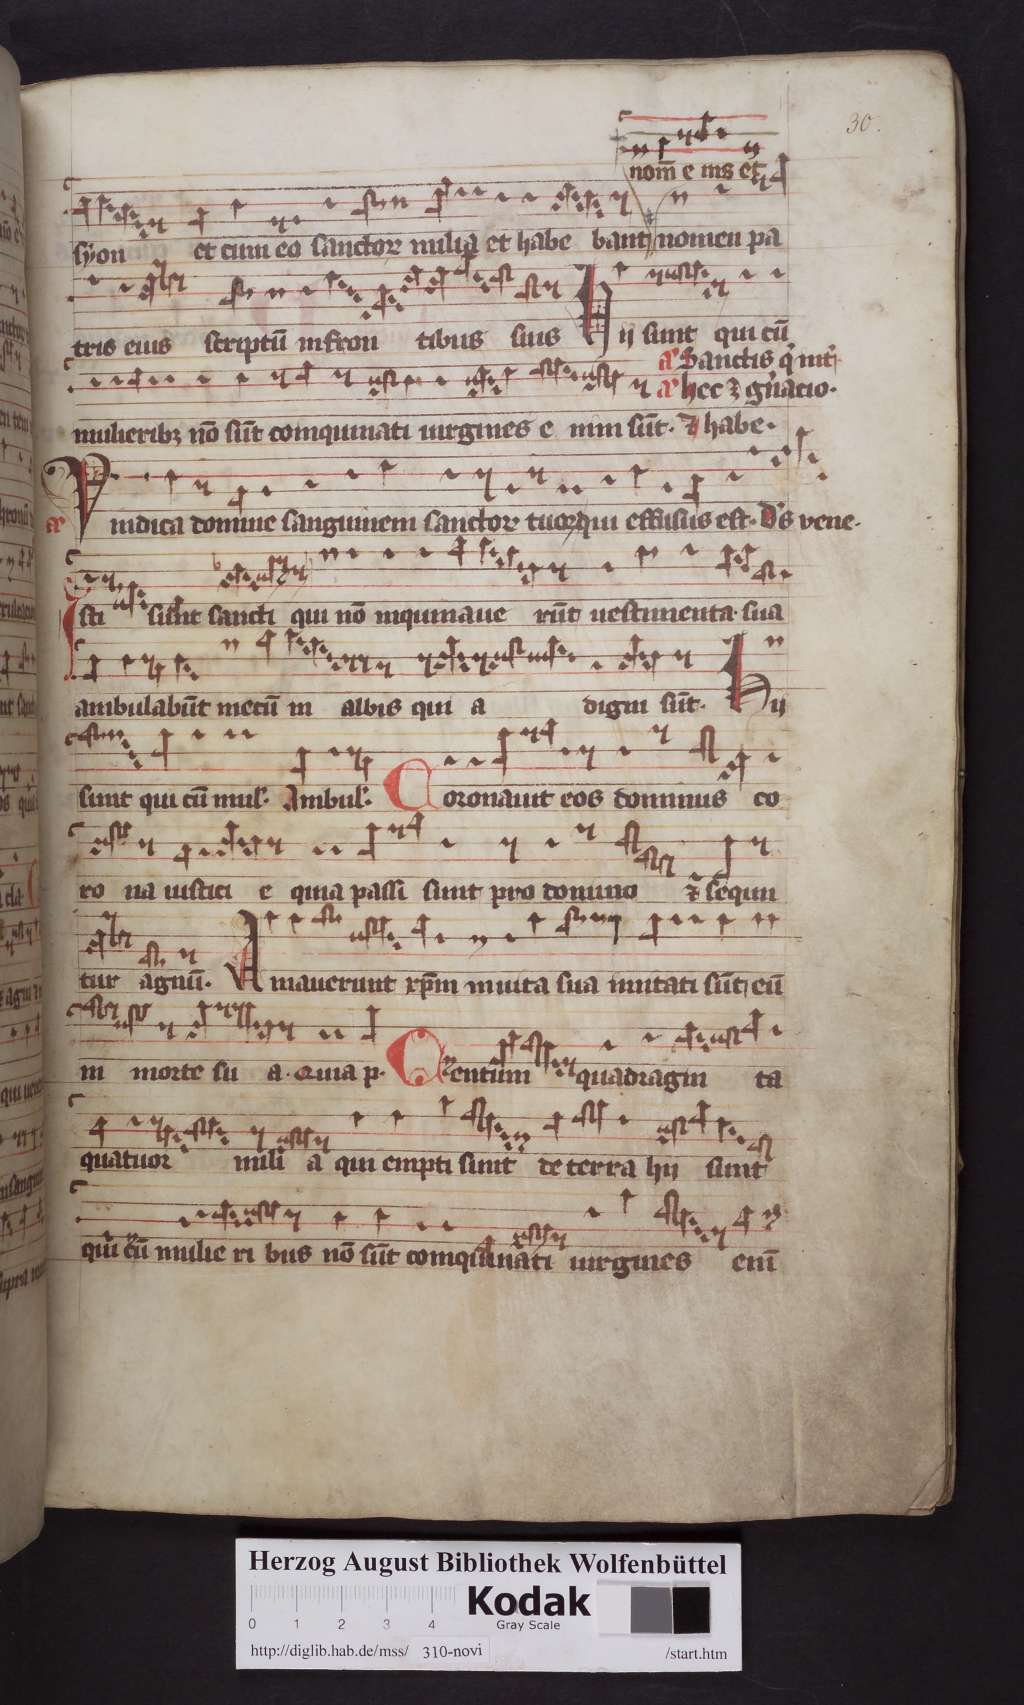 30.
nom̄ e ius et
syon et cum eo sanctoꝝ milia et habe bant nomen pa
tris eius scriptū in fron tibus suis Hii sunt qui cū
aͣ Sanctis q̇ i
aͣ hec ē gn̄atio.
mulieribꝫ nō sūt comquinati uirgines e nim sūt. Et habe.
aͣ Vindica domine sanguinem sanctoꝝ tuoꝝ qui effusus est. Ds̄ vene.
Isti sunt sancti qui nō inquinaue rūt uestimenta sua
ambulabūt mecū in albis qui a digni sūt. Hii
sunt qui cū mul̄. Ambul̄. Coronauit eos dominus co
ro na iustici e quia passi sunt pro domino ⁊ secun
tur agnū. Amauerunt xp̄m in uita sua imitati sūt eū
in morte su a. Quia p. Centum quadragin ta
quatuor mili a qui empti sunt de terra hii sunt
qui cū mulie ri bus nō sūt comquinati uirgines enī
Herzog August Bibliothek Wolfenbüttel
Kodak
Gray Scale
0 1 2 3 4
http://diglib.hab.de/mss/ 310-novi /start.htm